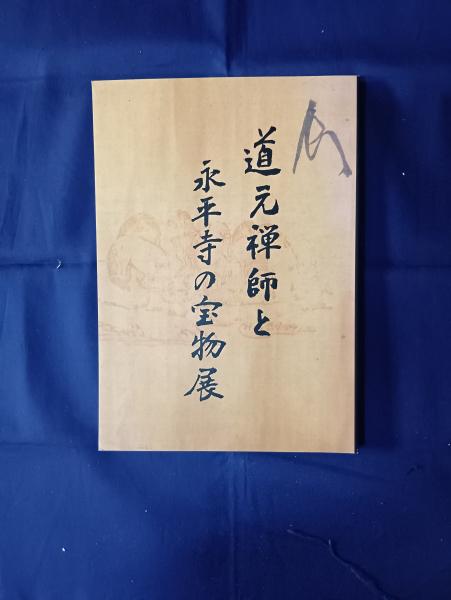 道元禅師と
永平寺の宝物展